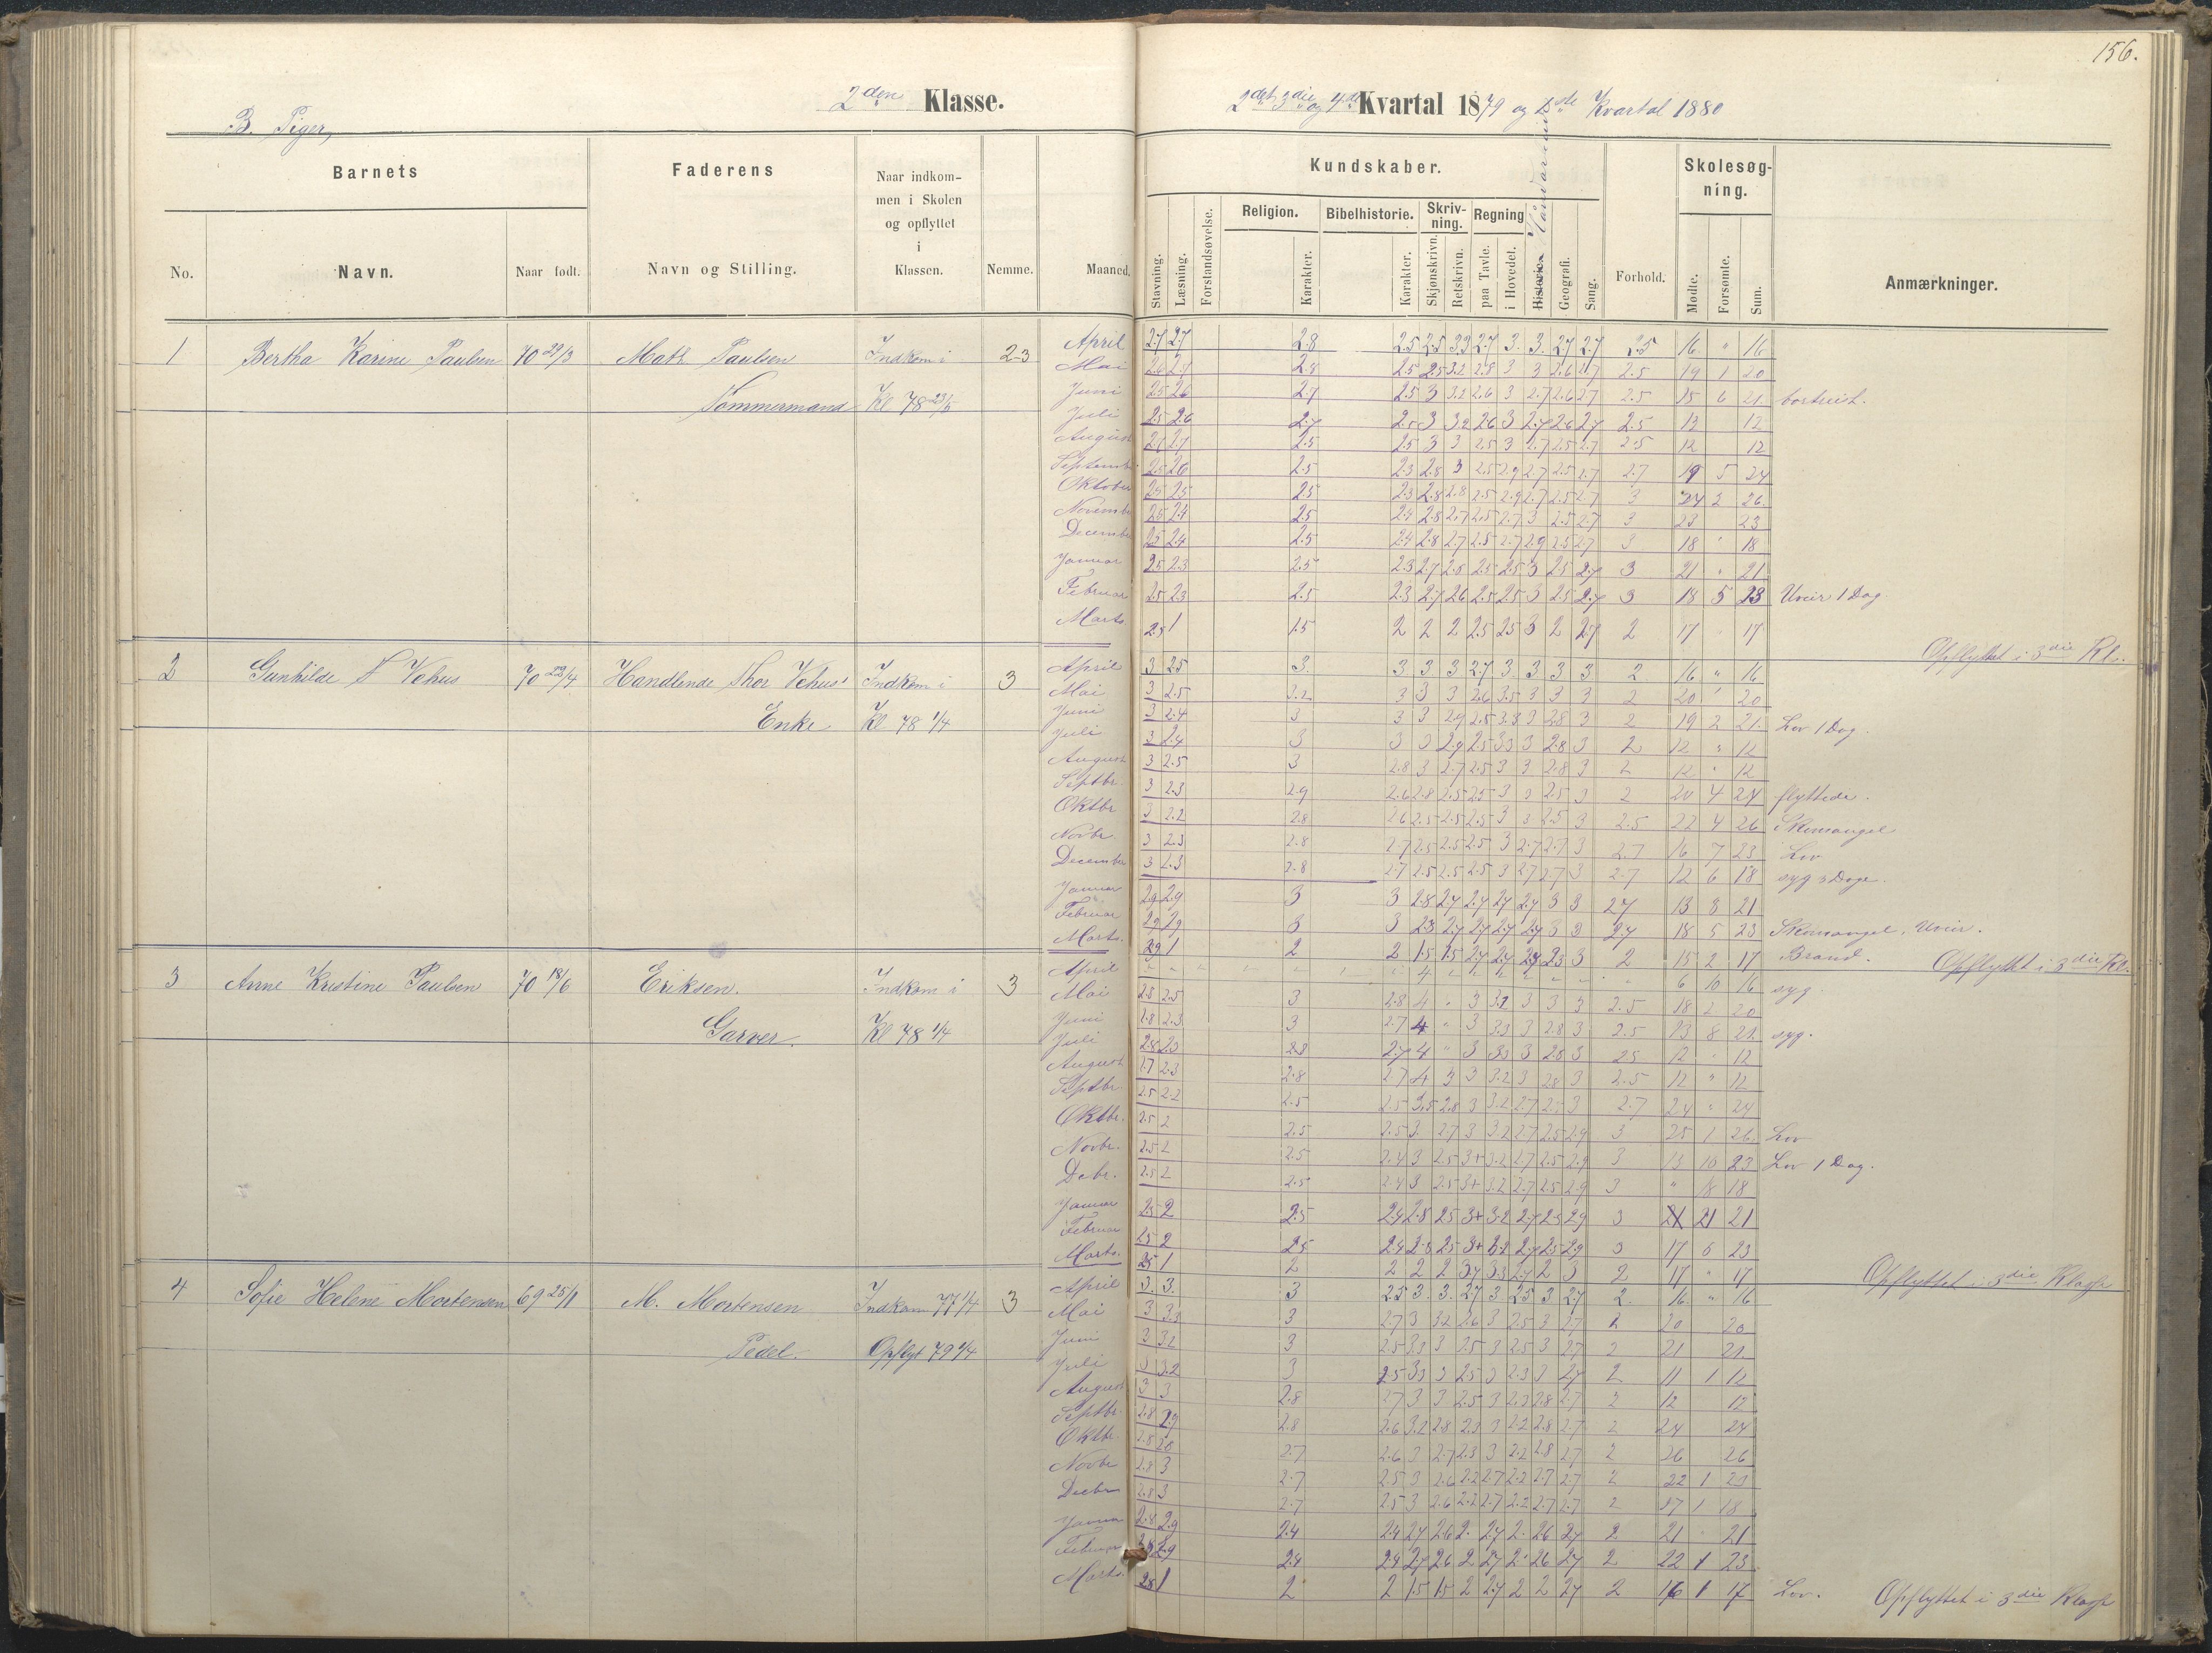 156.
2den Klasse.
2det 3die og 4de Kvartal 1879 og 1ste Kvartal 1880
B. Piger,
Barnets
Faderens
Naar indkommen i Skolen og opflyttet i Klassen.
Nemme.
Maaned.
Kundskaber.
Forhold.
Skolesøgning.
Anmærkninger.
No.
Navn.
Naar født.
Navn og Stilling.
Stavning.
Læsning.
Forstandsøvelse.
Religion.
Karakter.
Bibelhistorie.
Karakter.
Skrivning.
Skjønskrivn.
Retskrivn.
Regning
paa Tavle.
i Hovedet.
Historie.
Geografi.
Sang.
Mødte.
Forsømte.
Sum.
1 Bertha Karine Paulsen 70 29/3 Math. Paulsen Indkom i 2-3
Tømmermand Kl 78 23/5
April 2.7 2.7 2.8 2.5 2.5 3.3 2.7 3. 3. 2.7 2.7 2.5 16. " 16
Mai 2.8 2.5 2.5 3.2 2.8 3 3 2.6 2.7 2.5 19 1 20
Juni 2.5 2.6 2.7 2.5 3 3.2 2.6 3 2.7 2.6 2.7 2.5 15 6 21 bortreist.
Juli 2.5 2.6 2.7 2.5 3 3.2 2.6 3 2.7 2.6 2.7 2.5 12 12
August 2.5 2.5 3 3 2.5 3 2.7 2.5 2.7 2.5 12 12
Septembr 2.5 2.6 2.5 2.3 2.8 3 2.5 2.9 2.7 2.5 2.7 2.7 19 5 24
Oktober 2.5 2.5 2.5 2.3 2.8 2.8 2.5 2.9 2.7 2.5 2.7 3 24 2 26
Novemb 2.5 2.4 2.5 2.4 2.8 2.7 2.5 2.7 3 2.5 2.7 3 23 23
Decemb 2.5 2.4 2.5 2.4 2.8 2.7 2.5 2.7 2.9 2.5 2.7 3 18 18
Januar 2.5 2.3 2.5 2.3 2.7 2.6 2.5 2.5 3 2.5 2.7 3 21 " 21
Februar 2.5 2.3 2.5 2.3 2.7 2.6 2.5 2.5 3 2.5 2.7 3 18 5 23 Uveir 1 Dag
Marts 2.5 1 1.5 2 2 2 2.5 2.5 3 2 2.7 2 17 17
Opflyttet i 3die Kl.
2 Gunhilde Vehus 70 22/4 Handlende Thor Vehus' Indkom i 3
Enke Kl 78 1/4
April 3 2.5 3. 3 3 3 2.7 3. 3 3 3 2 16 " 16
Mai 3 2.5 3.2 3 3 3 2.6 3.5 3 3 3 2 20 20
Juni 3 2.4 3 3 3 2.9 2.5 3.3 3 2.8 3 2 19 2 21. Lov 1 Dag.
Juli 3 2.4 3 3 3 2.9 2.5 3.3 3 2.8 3 2 12 " 12
August 3 2.5 3 2.8 3 2.7 2.5 3 3 2.8 3 2 12 " 12
Septbr. 3 2.3 2.9 2.6 2.8 2.5 2.5 3 3 2.5 3 2 20 4 24 flyttede.
Oktbr 3 2.2 2.8 2.6 2.5 2.5 2.5 3 3 2.5 3 2.5 22 4 26 Skomangel
Novbr. 3 2.3 2.8 2.7 2.5 2.5 2.5 3 2.7 2.7 3 2.7 16 7 23 Lov
December 3 2.3 2.8 2.7 2.5 2.5 2.5 3 2.7 2.7 3 2.7 12 6 18 syg 3 Dage.
Januar 2.9 2.9 3 3 2.8 2.7 2.7 2.7 2.7 3 3 2.7 13 8 21
Februar 2.9 2.9 3 3 2.3 2.7 2.7 2.7 2.7 3 3 2.7 18 5 23 Skomangel, Uveir.
Marts. 2.9 1 2 2 1.5 1.5 2.7 2.7 2.7 2.3 3 2 15 2 17 Brand. Opflyttet i 3die Kl.
3 Anne Kristine Paulsen 70 18/6 Eriksen. Indkom i 3
Garver. Kl 78 1/4
April 4 6 10 16 syg.
Mai 2.5 2.5 3 2.8 4 " 3 3.2 3 3 3 2.5 18 2 20
Juni 2.8 2.3 3 2.7 4 " 3 3.3 3 2.8 3 2.5 13 8 21 syg.
Juli 2.8 2.3 2.8 2.7 4 " 3 3.3 3 2.8 3 2.5 12 " 12
August 2.7 2.3 2.8 2.7 4 3 3 3.2 3 2.8 3 2.5 12 " 12
Septbr 2.5 2.2 2.5 2.5 3.5 2.8 3 3.2 2.7 2.5 3 2.7 24 " 24
Oktbr. 2.5 2 2.5 2.5 3. 2.7 3 3.2 2.7 2.5 2.9 3 25 1 26 Lov
Novbr. 2.5 2 2.5 2.4 3 2.5 3+ 3.2 2.7 2.5 2.9 3 13 10 23 Lov 1 Dag.
Decbr. 2.5 2 2.5 2.4 3 2.5 3+ 3.2 2.7 2.5 2.9 3 " 18 18
Januar 2.5 2 2.5 2.4 2.8 2.5 3+ 3.2 2.7 2.5 2.9 3 21 21
Februar 2.5 2 2.5 2.4 2.8 2.5 3+ 3.2 2.7 2.5 2.9 3 17 6 23
Marts. 2.5 1 2 2 2 2 3.3 2.7 2 3 2 17 " 17
Opflyttet i 3die Klasse
4 Sofie Helene Mortensen 69 25/1 M. Mortensen Indkom 77 1/4 3
Pedel. Opflyt 79 1/4
April 3. 3. 3 2.5 3. 3. 2.7 3 2.5 3 2.7 2. 16. " 16
Mai 3 3.3 3 2.7 3 3.2 2.6 3 2.5 3 2.7 2 20 20
Juni 3 3.2 3 2.5 3.3 3 2.5 3 2.5 3 2.7 2 21 21
Juli 3 3.2 3 2.5 3.3 3 2.5 3 2.3 3 2.7 2 11 1 12
August 3 3 2.8 2.7 3 3 2.5 3 2.3 2.8 2.7 2 12 12
Septbr 2.8 2.9 2.8 2.6 3.2 2.8 2.3 3 2.2 2.8 2.7 2 24 24
Oktbr. 2.8 2.7 2.6 3 2.7 2.3 3 2.2 2.8 2.7 2 26 26
Novbr 2.8 3 2.7 2.5 3 2.6 2.2 2.7 2.2 2.7 2.7 2 22 1 23
Decbr 2.8 3 2.7 2.5 3 2.6 2.2 2.7 2.2 2.7 2.7 2 17 1 18
Januar 2.8 2.9 2.4 2.4 2.7 2.6 2. 2.7 2. 2.6 2.7 2 21 21
Februar 2.9 2.4 2.4 2.7 2.6 2 2.7 2 2.6 2.7 2 22 1 23
Marts. 2.8 1 2 2 1.5 1.5 2 2.7 2 2 2.7 2 16 1 17 Lov. Opflyttet i 3die Klasse